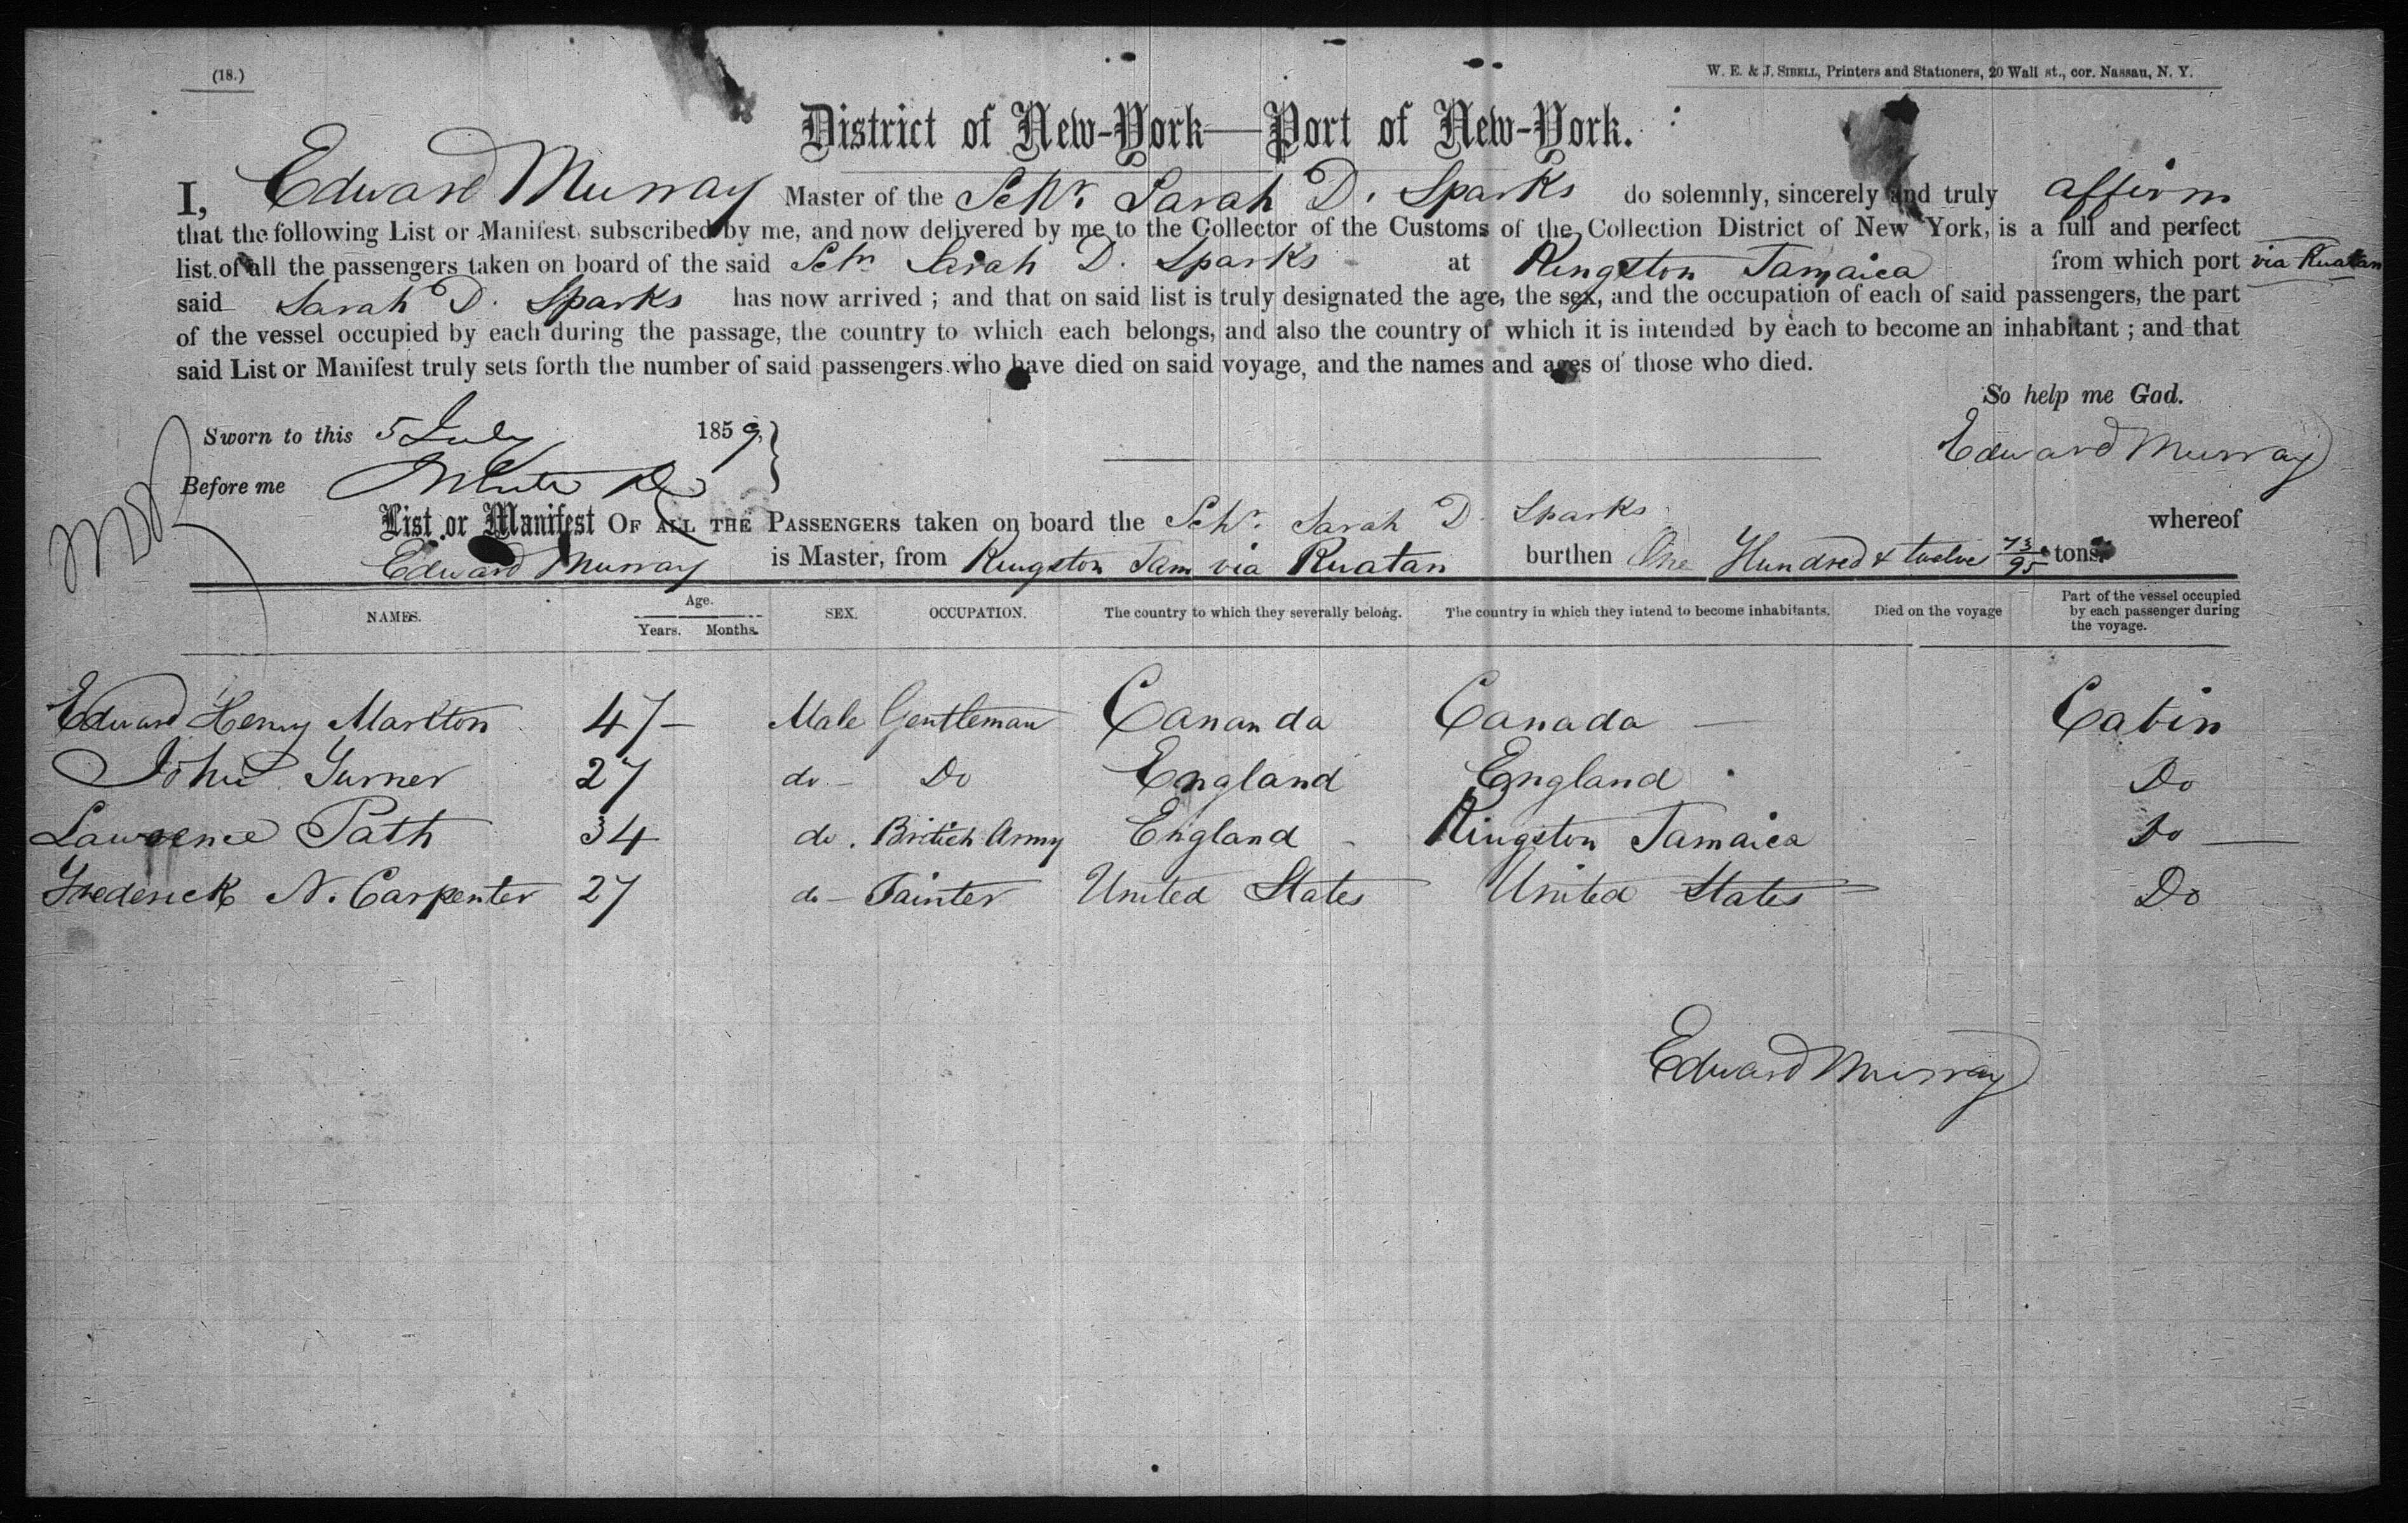 (18.)
W. E. & J. SIBELL, Printers and Stationers, 20 Wall st., cor. Nassau, N. Y.
District of New-York—Port of New-York.
I, Edward Murray Master of the Schr. Sarah D. Sparks do solemnly, sincerely and truly affirm
that the following List or Manifest, subscribed by me, and now delivered by me to the Collector of the Customs of the Collection District of New York, is a full and perfect
list of all the passengers taken on board of the said Schr Sarah D. Sparks at Kingston Jamaica from which port via Ruatan
said Sarah D. Sparks has now arrived; and that on said list is truly designated the age, the sex, and the occupation of each of said passengers, the part
of the vessel occupied by each during the passage, the country to which each belongs, and also the country of which it is intended by each to become an inhabitant; and that
said List or Manifest truly sets forth the number of said passengers who have died on said voyage, and the names and ages of those who died.
So help me God.
Sworn to this 5 July 1859,
Edward Murray
Before me
List or Manifest OF ALL THE PASSENGERS taken on board the Schr. Sarah D. Sparks whereof
Edward Murray is Master, from Kingston Jam via Ruatan burthen One Hundred & twelve 73/95 tons.
NAMES. Age. Years. Months. SEX. OCCUPATION. The country to which they severally belong. The country in which they intend to become inhabitants. Died on the voyage Part of the vessel occupied by each passenger during the voyage.
Edward Henry Markton 47 Male Gentleman Cananda Canada Cabin
John Turner 27 do Do England England Do
Lawrence Path 34 do. British Army England Kingston Jamaica Do
Frederick N. Carpenter 27 do Painter United States United States Do
Edward Murray